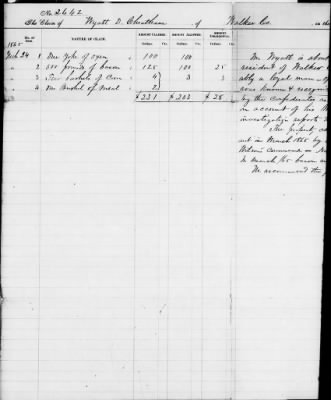 No. 2662
The Claim of Wyatt D. Cheatham of Walker Co. in the
No. of Item. NATURE OF CLAIM. AMOUNT CLAIMED. AMOUNT ALLOWED. AMOUNT DISALLOWED.
Dollars Cts. Dollars Cts. Dollars Cts.
1865
Mch 24 1 One Yoke of oxen 100 100
2 500 pounds of bacon 125 100 25
3 Four bushels of Corn 4 3 3
4 One Bushel of Meal 2
$231 $203 $28
Mr. Wyatt is about
resident of Walker
ably a loyal man
was known & recogn
by the Confederates
on account of his
investigation reports
The property
out in March 1865 by
Wilson's Command
in March '65
We recommend the